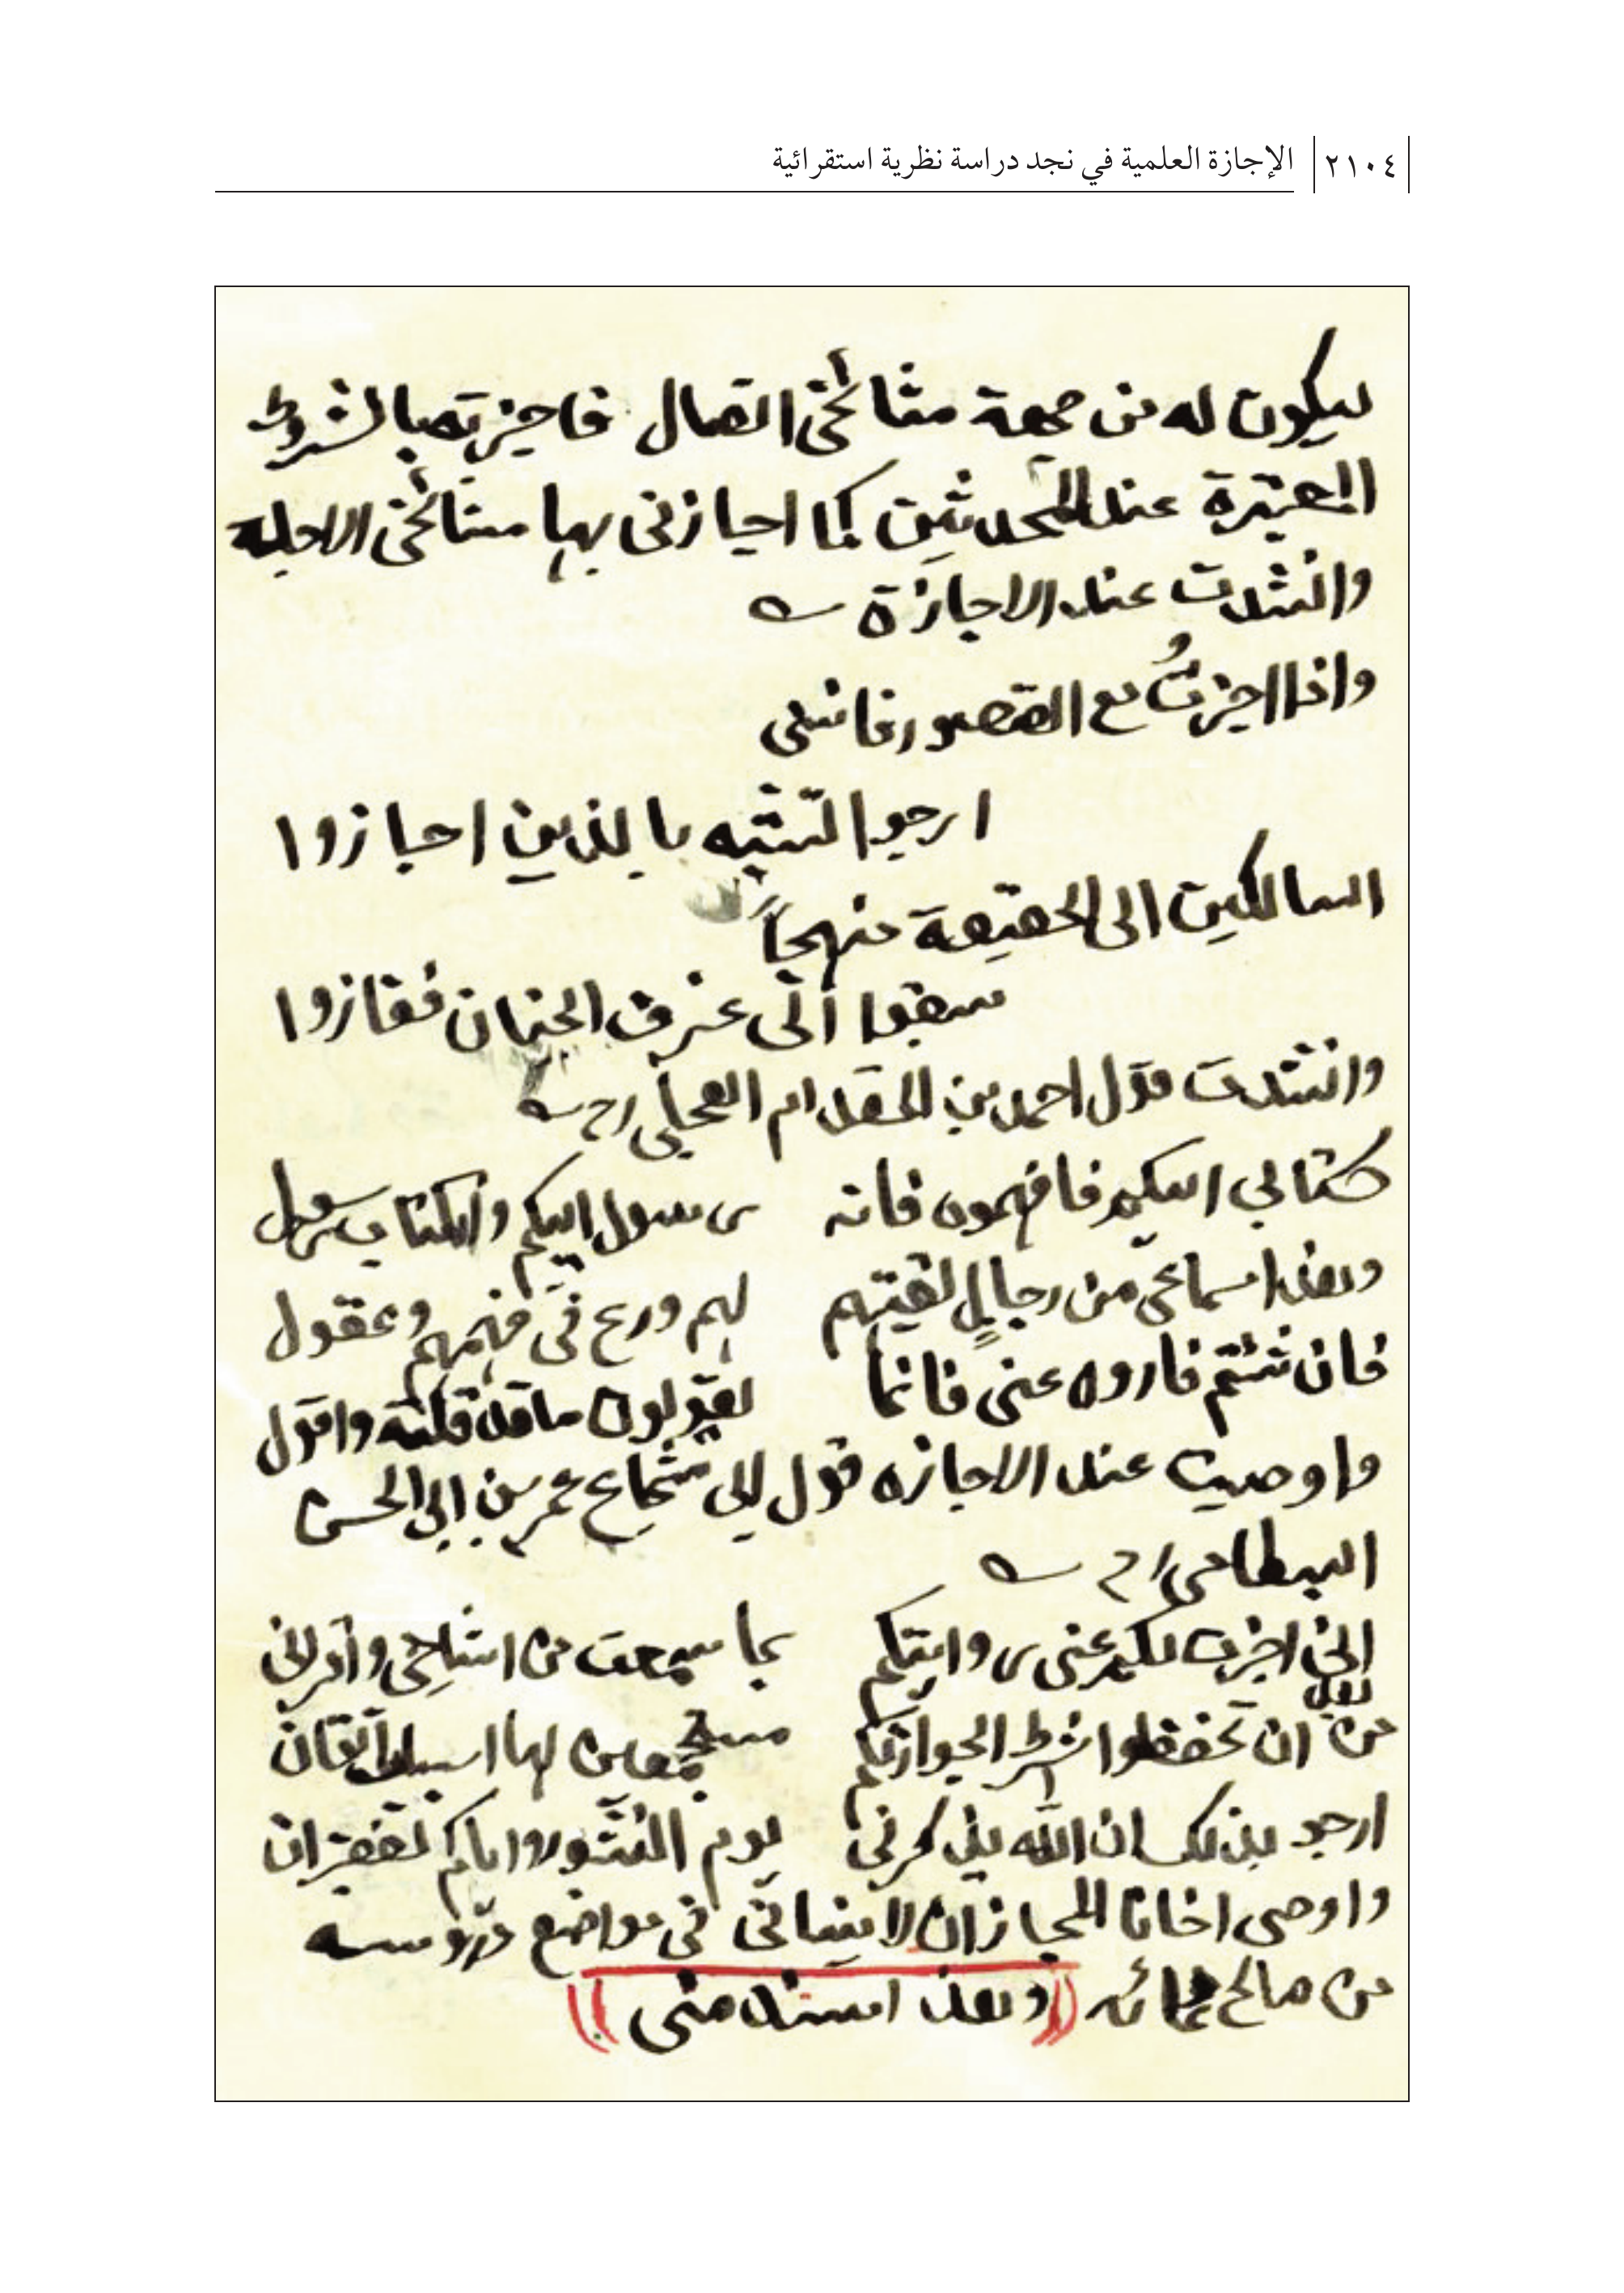 ٢١٠٤ الإجازة العلمية في نجد دراسة نظرية استقرائية
ليكون له من جهة مشائخي اتصال فاجيزته بالشروط
المعتبرة عند المحدثين كما اجازني بها مشائخي الاجله
وانشدت عند الاجازة
واذا اجزتُ مع القصور فانني
ارجو التشبه بالذين اجازوا
السالكين الى الحقيقة منهجاً
سبقوا الى غرف الجنان ففازوا
وانشدت قول احمد بن المقدام العجلي رح
كتابي اليكم فافهموه فانه رسول اليكم والكتاب رسول
وهذا سماعي من رجالٍ لقيتهم لهم ورع في فهمهم وعقول
فان شئتم فاروه عني فانما تقولون ما قد قلته واقول
واوصيت عند الاجازه قول ابي شجاع عمر بن ابي الحسن
البسطامي رح
اني اجزت لكم عني روايتكم بما سمعت من اشياخي واقراني
من بعد ان تحفظوا شرط الجواز لكم مستجمعين لها اسباب اتقان
ارجو بذلك ان الله يذكرني يوم النشور واياكم بغفران
واوصي اخانا المجاز ان لا ينساني في مواضع دروسه
من صالح دعائه ((وهذا سند متى))